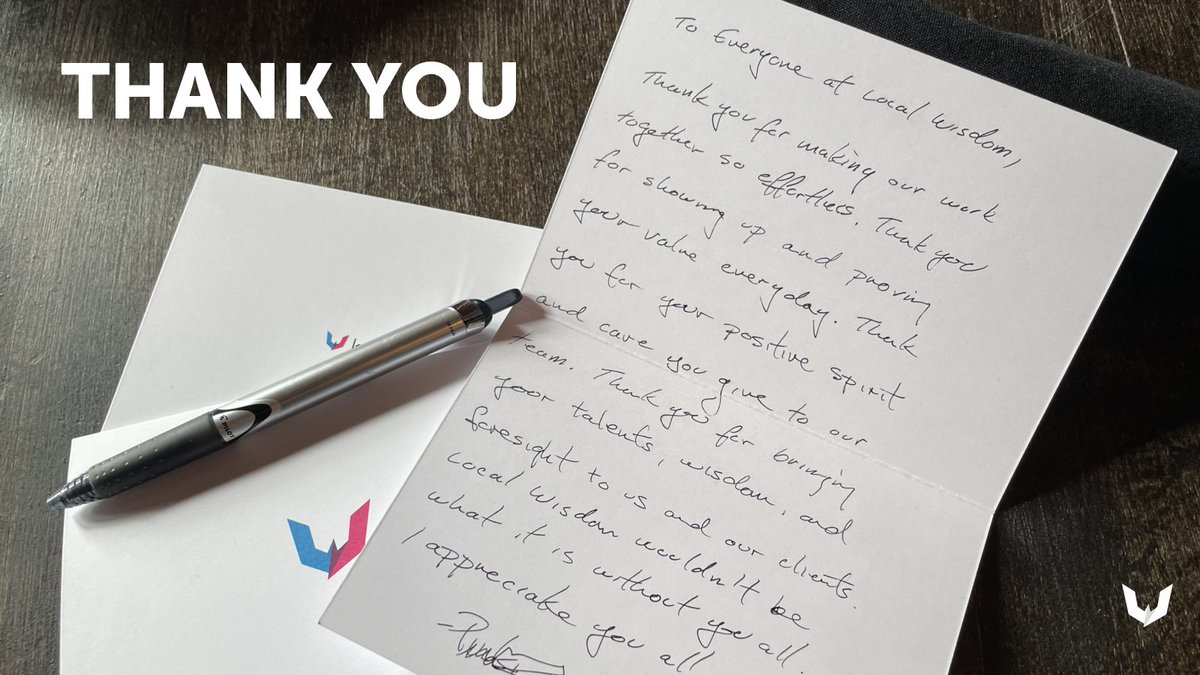 THANK YOU
To Everyone at Local Wisdom,
Thank you for making our work
together so effortless. Thank you
for showing up and proving
your value everyday. Thank
you for your positive spirit
and care you give to our
team. Thank you for bringing
your talents, wisdom, and
foresight to us and our clients.
Local Wisdom wouldn't be
what it is without you all.
I appreciate you all
PILOT